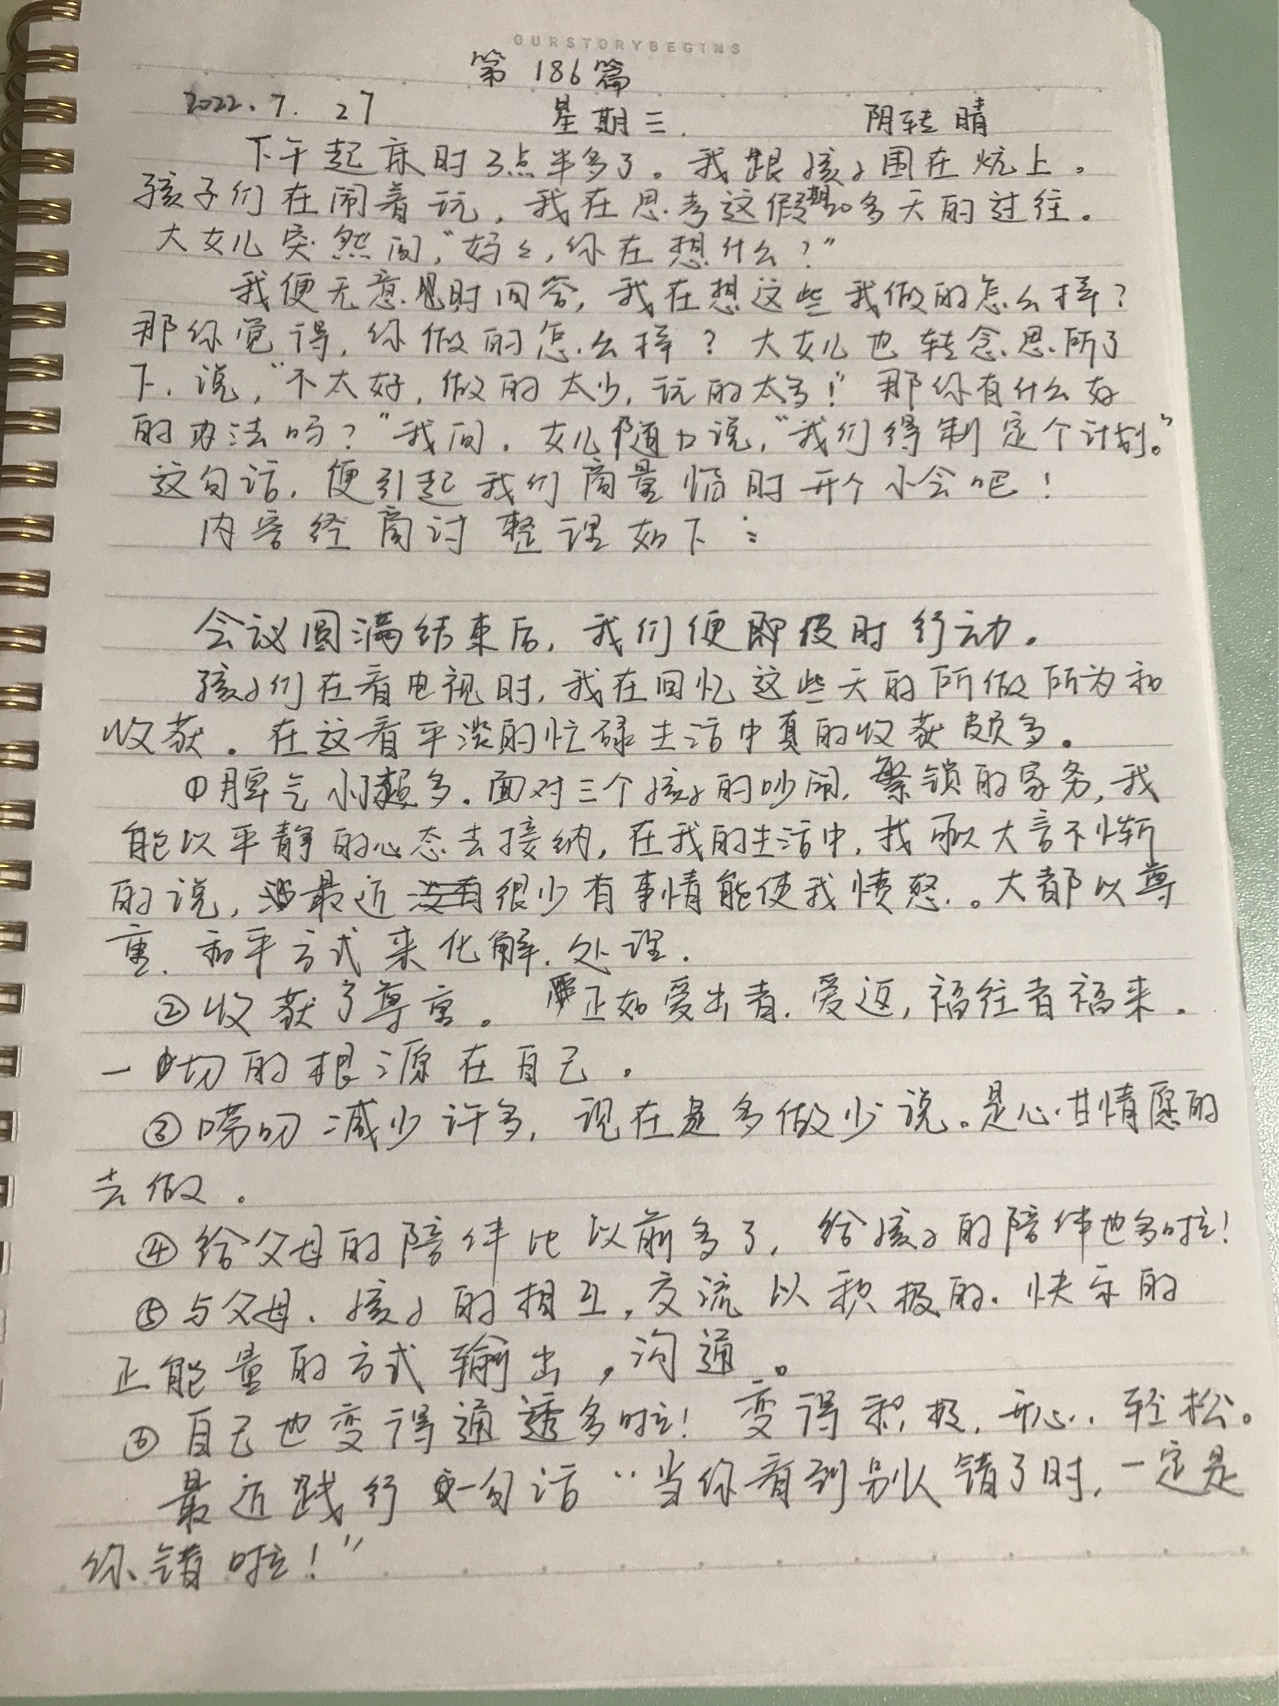 OURSTORYBEGINS
第 186篇
2022.7.27 星期三. 阴转晴
下午起床时3点半多了。我跟孩子围在炕上。
孩子们在闹着玩，我在思考这假期20多天的过往。
大女儿突然问，“妈妈，你在想什么？”
我便无意思时回答，我在想这些我做的怎么样？
那你觉得，你做的怎么样？大女儿也转念思所了
下，说，“不太好，做的太少，玩的太多！”那你有什么好
的办法吗？”我问。女儿随口说，“我们得制定个计划。”
这句话，便引起我们商量临时开个小会吧！
内容经商讨整理如下：
会议圆满结束后，我们便即时行动。
孩子们在看电视时，我在回忆这些天的所做所为和
收获。在这看平淡的忙碌生活中真的收获颇多。
①脾气小颇多。面对三个孩子的吵闹，繁锁的家务，我
能以平静的心态去接纳，在我的生活中，我敢大言不惭
的说，最近很少有事情能使我愤怒。大都以尊
重、和平方式来化解、处理.
②收获了尊重。正如爱出者，爱返，福往者福来.
一切的根源在自己。
③唠叨减少许多，现在是多做少说。是心甘情愿的
去做。
④给父母的陪伴比以前多了，给孩子的陪伴也多啦！
⑤与父母、孩子的相互，交流以积极的、快乐的
正能量的方式输出，沟通。
⑥自己也变得通透多啦！变得积极，开心、轻松。
最近践行一句话“当你看到别人错了时，一定是
你错啦！”